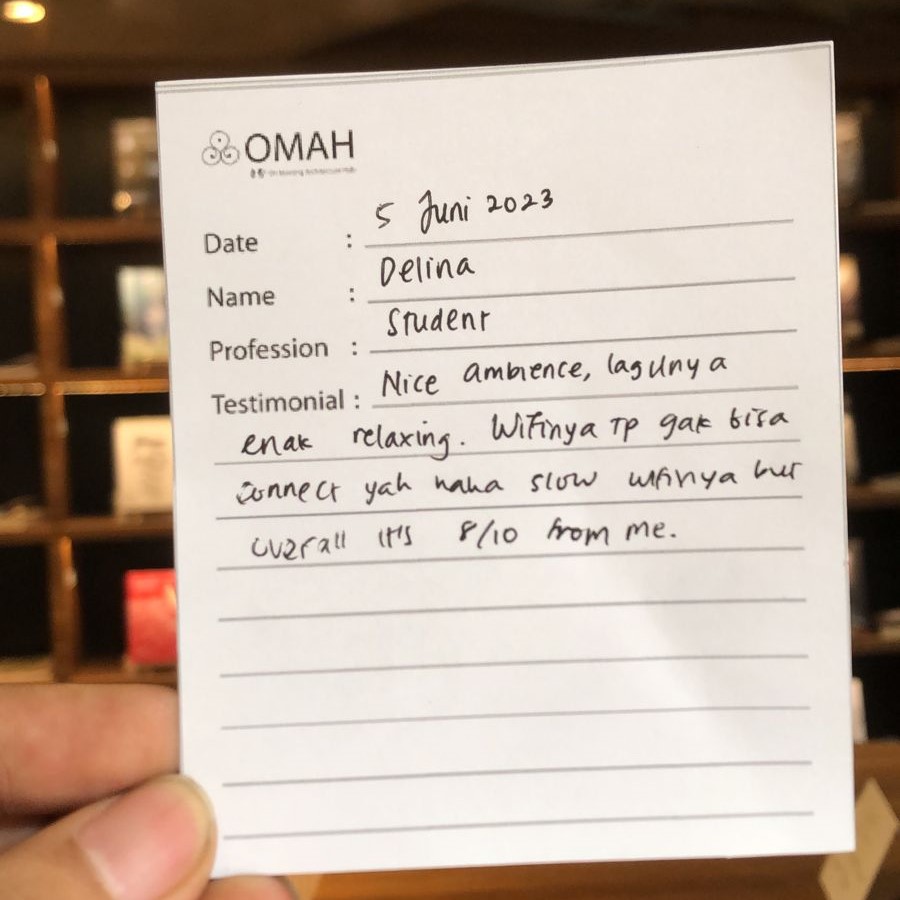 OMAH
Date : 5 Juni 2023
Name : Delina
Profession : Student
Testimonial : Nice ambience, lagunya
enak relaxing. Wifinya tp gak bisa
connect yah haha slow wifinya but
overall it's 8/10 from me.